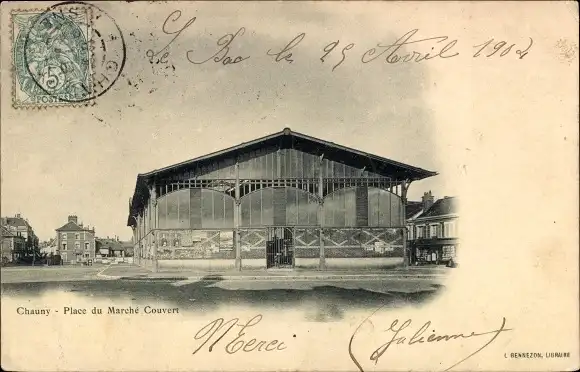 5c
POSTES
Le Bac le 25 Avril 1902
Chauny - Place du Marché Couvert
Merci Julienne
L BENNEZON, LIBRAIRE